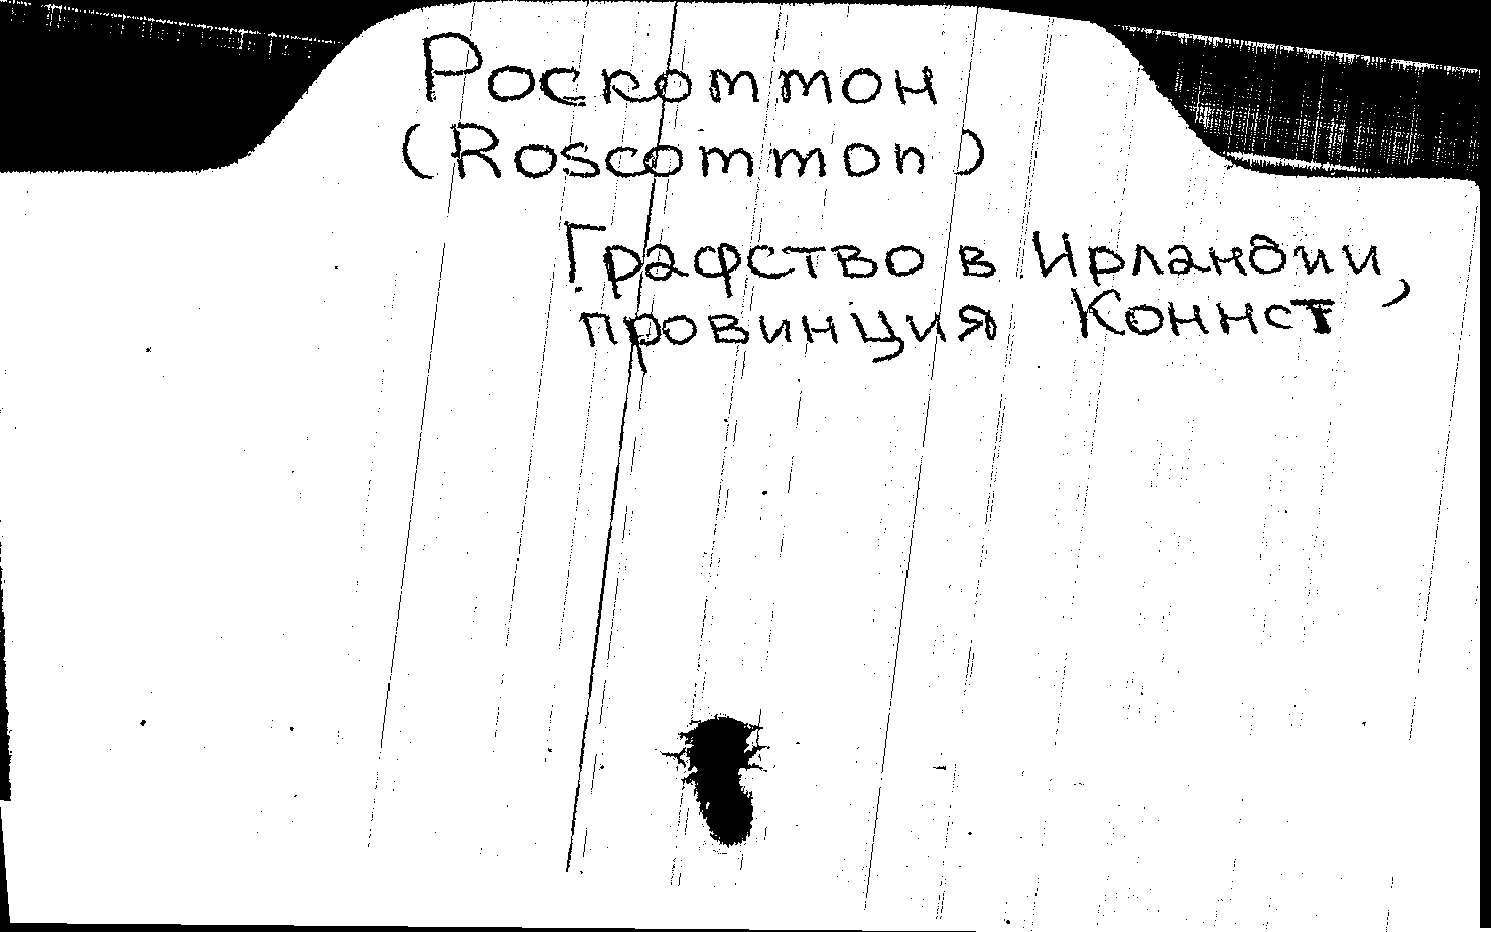 Роскоммон
(Roscommon)
Графство в Ирландии,
провинция Коннст